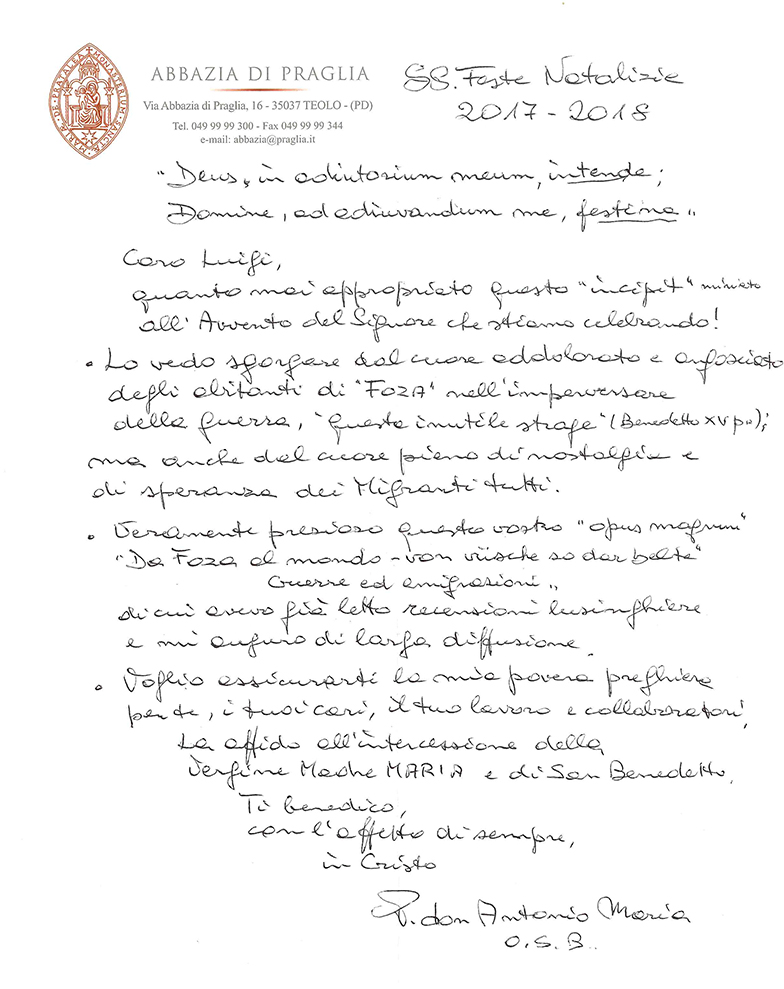 MARIÆ DE PRATALEA MONASTERIUM SANCTÆ
ABBAZIA DI PRAGLIA
Via Abbazia di Praglia, 16 - 35037 TEOLO - (PD)
Tel. 049 99 99 300 - Fax 049 99 99 344
e-mail: abbazia@praglia.it
SS. Feste Natalizie
2017 - 2018
"Deus, in adiutorium meum, intende;
Domine, ad adiuvandum me, festina"
Caro Luigi,
quanto mai appropriato questo "incipit" miniato
all'Avvento del Signore che stiamo celebrando!
• Lo vedo sgorgare dal cuore addolorato e angosciato
degli abitanti di "FOZA" nell'imperversare
della guerra, "questa inutile strage" (Benedetto XV p.);
ma anche dal cuore pieno di nostalgia e
di speranza dei Migranti tutti.
• Veramente prezioso questo vostro "opus magnum"
"Da Foza al mondo - von vüsche so dar belte"
Guerre ed emigrazioni"
di cui avevo già letto recensioni lusinghiere
e mi auguro di larga diffusione.
• Voglio assicurarti la mia povera preghiera
per te, i tuoi cari, il tuo lavoro e collaboratori,
La affido all'intercessione della
Vergine Madre MARIA e di San Benedetto.
Ti benedico,
con l'affetto di sempre,
in Cristo
P. don Antonio Maria
O.S.B.